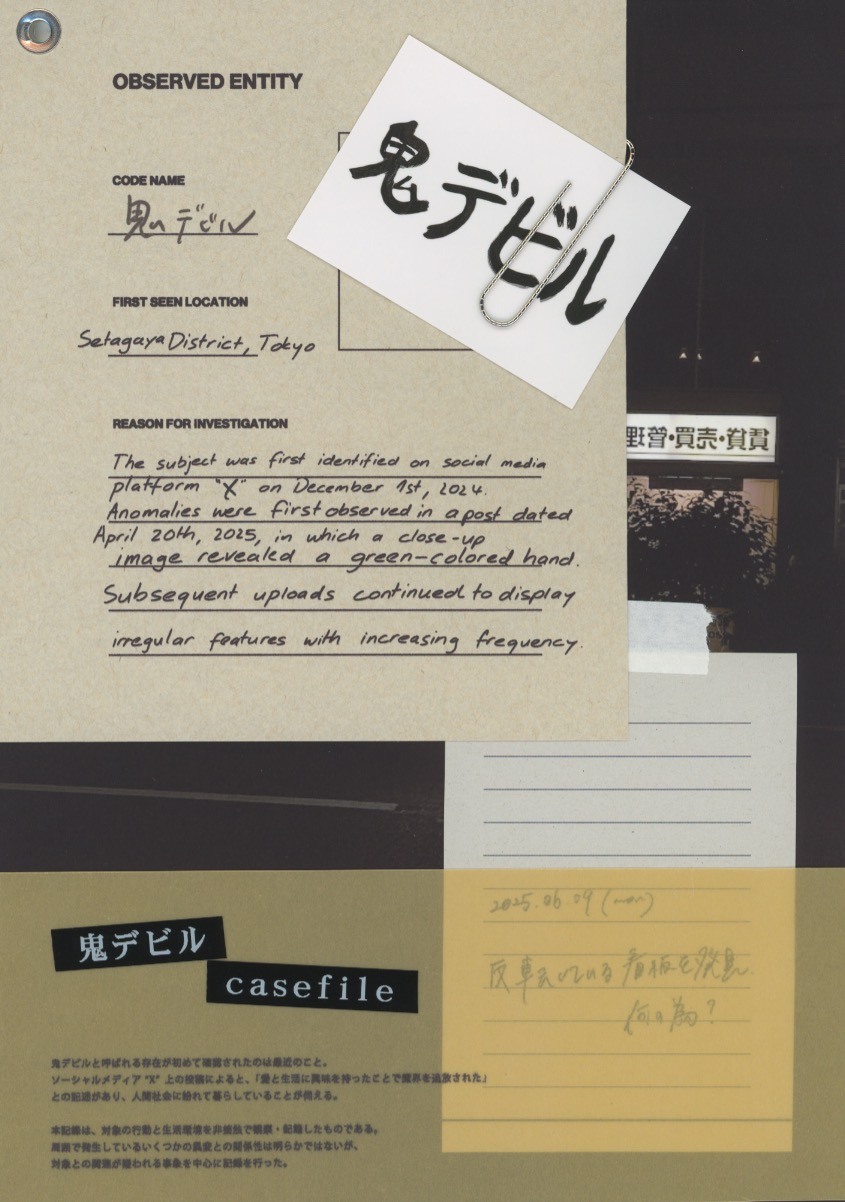 OBSERVED ENTITY
CODE NAME
鬼デビル
鬼デビル
FIRST SEEN LOCATION
Setagaya District, Tokyo
REASON FOR INVESTIGATION
The subject was first identified on social media
platform "X" on December 1st, 2024.
Anomalies were first observed in a post dated
April 20th, 2025, in which a close-up
image revealed a green-colored hand.
Subsequent uploads continued to display
irregular features with increasing frequency.
賃貸・売買・管理
2025.06.09 (mon)
反転している看板を発見。
何の為?
鬼デビル
casefile
鬼デビルと呼ばれる存在が初めて確認されたのは最近のこと。
ソーシャルメディア "X" 上の投稿によると、「愛と生活に興味を持ったことで魔界を追放された」
との記述があり、人間社会に紛れて暮らしていることが伺える。
本記録は、対象の行動と生活環境を非接触で観察・記録したものである。
周囲で発生しているいくつかの異変との関係性は明らかではないが、
対象との関連が疑われる事象を中心に記録を行った。